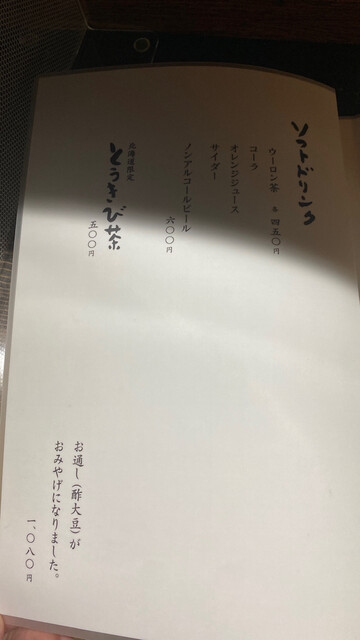 ソフトドリンク
ウーロン茶 各 四五〇円
コーラ
オレンジジュース
サイダー
ノンアルコールビール
六〇〇円
北海道限定
とうきび茶
五〇〇円
お通し（酢大豆）が
おみやげになりました。
一、〇八〇円